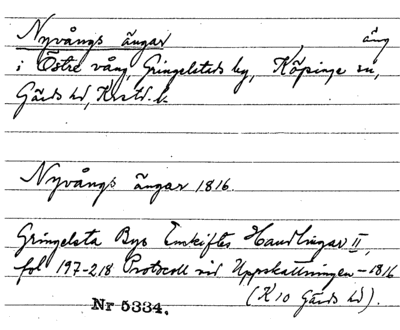 Nyvångs ängar äng
i Östre vång, Gringelstads by, Köpinge sn,
Gärds hd, Krstd. l.
Nyvångs ängar 1816.
Gringelsta Bys Enskiftes Handlingar II,
fol 197-218 Protocoll vid Uppskattningen - 1816
(K 10 Gärds hd).
Nr 5334.